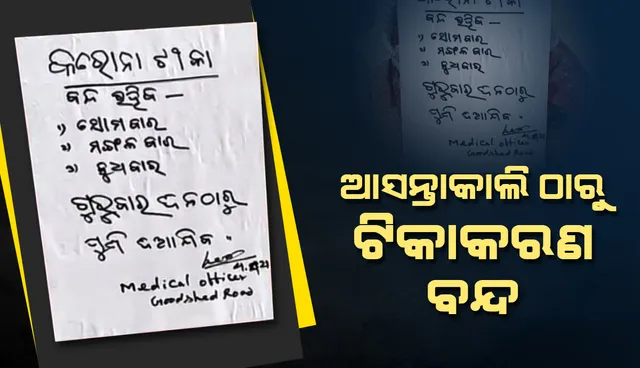 କରୋନା ଟୀକା
ବନ୍ଦ ରହିବ —
୧) ସୋମବାର
୨) ମଙ୍ଗଳ ବାର
୩) ବୁଧବାର
ଗୁରୁବାର ଦିନଠାରୁ
ପୁଣି ଦିଆଯିବ .
Medical officer
Goodshed Road
ଆସନ୍ତାକାଲି ଠାରୁ
ଟିକାକରଣ
ବନ୍ଦ